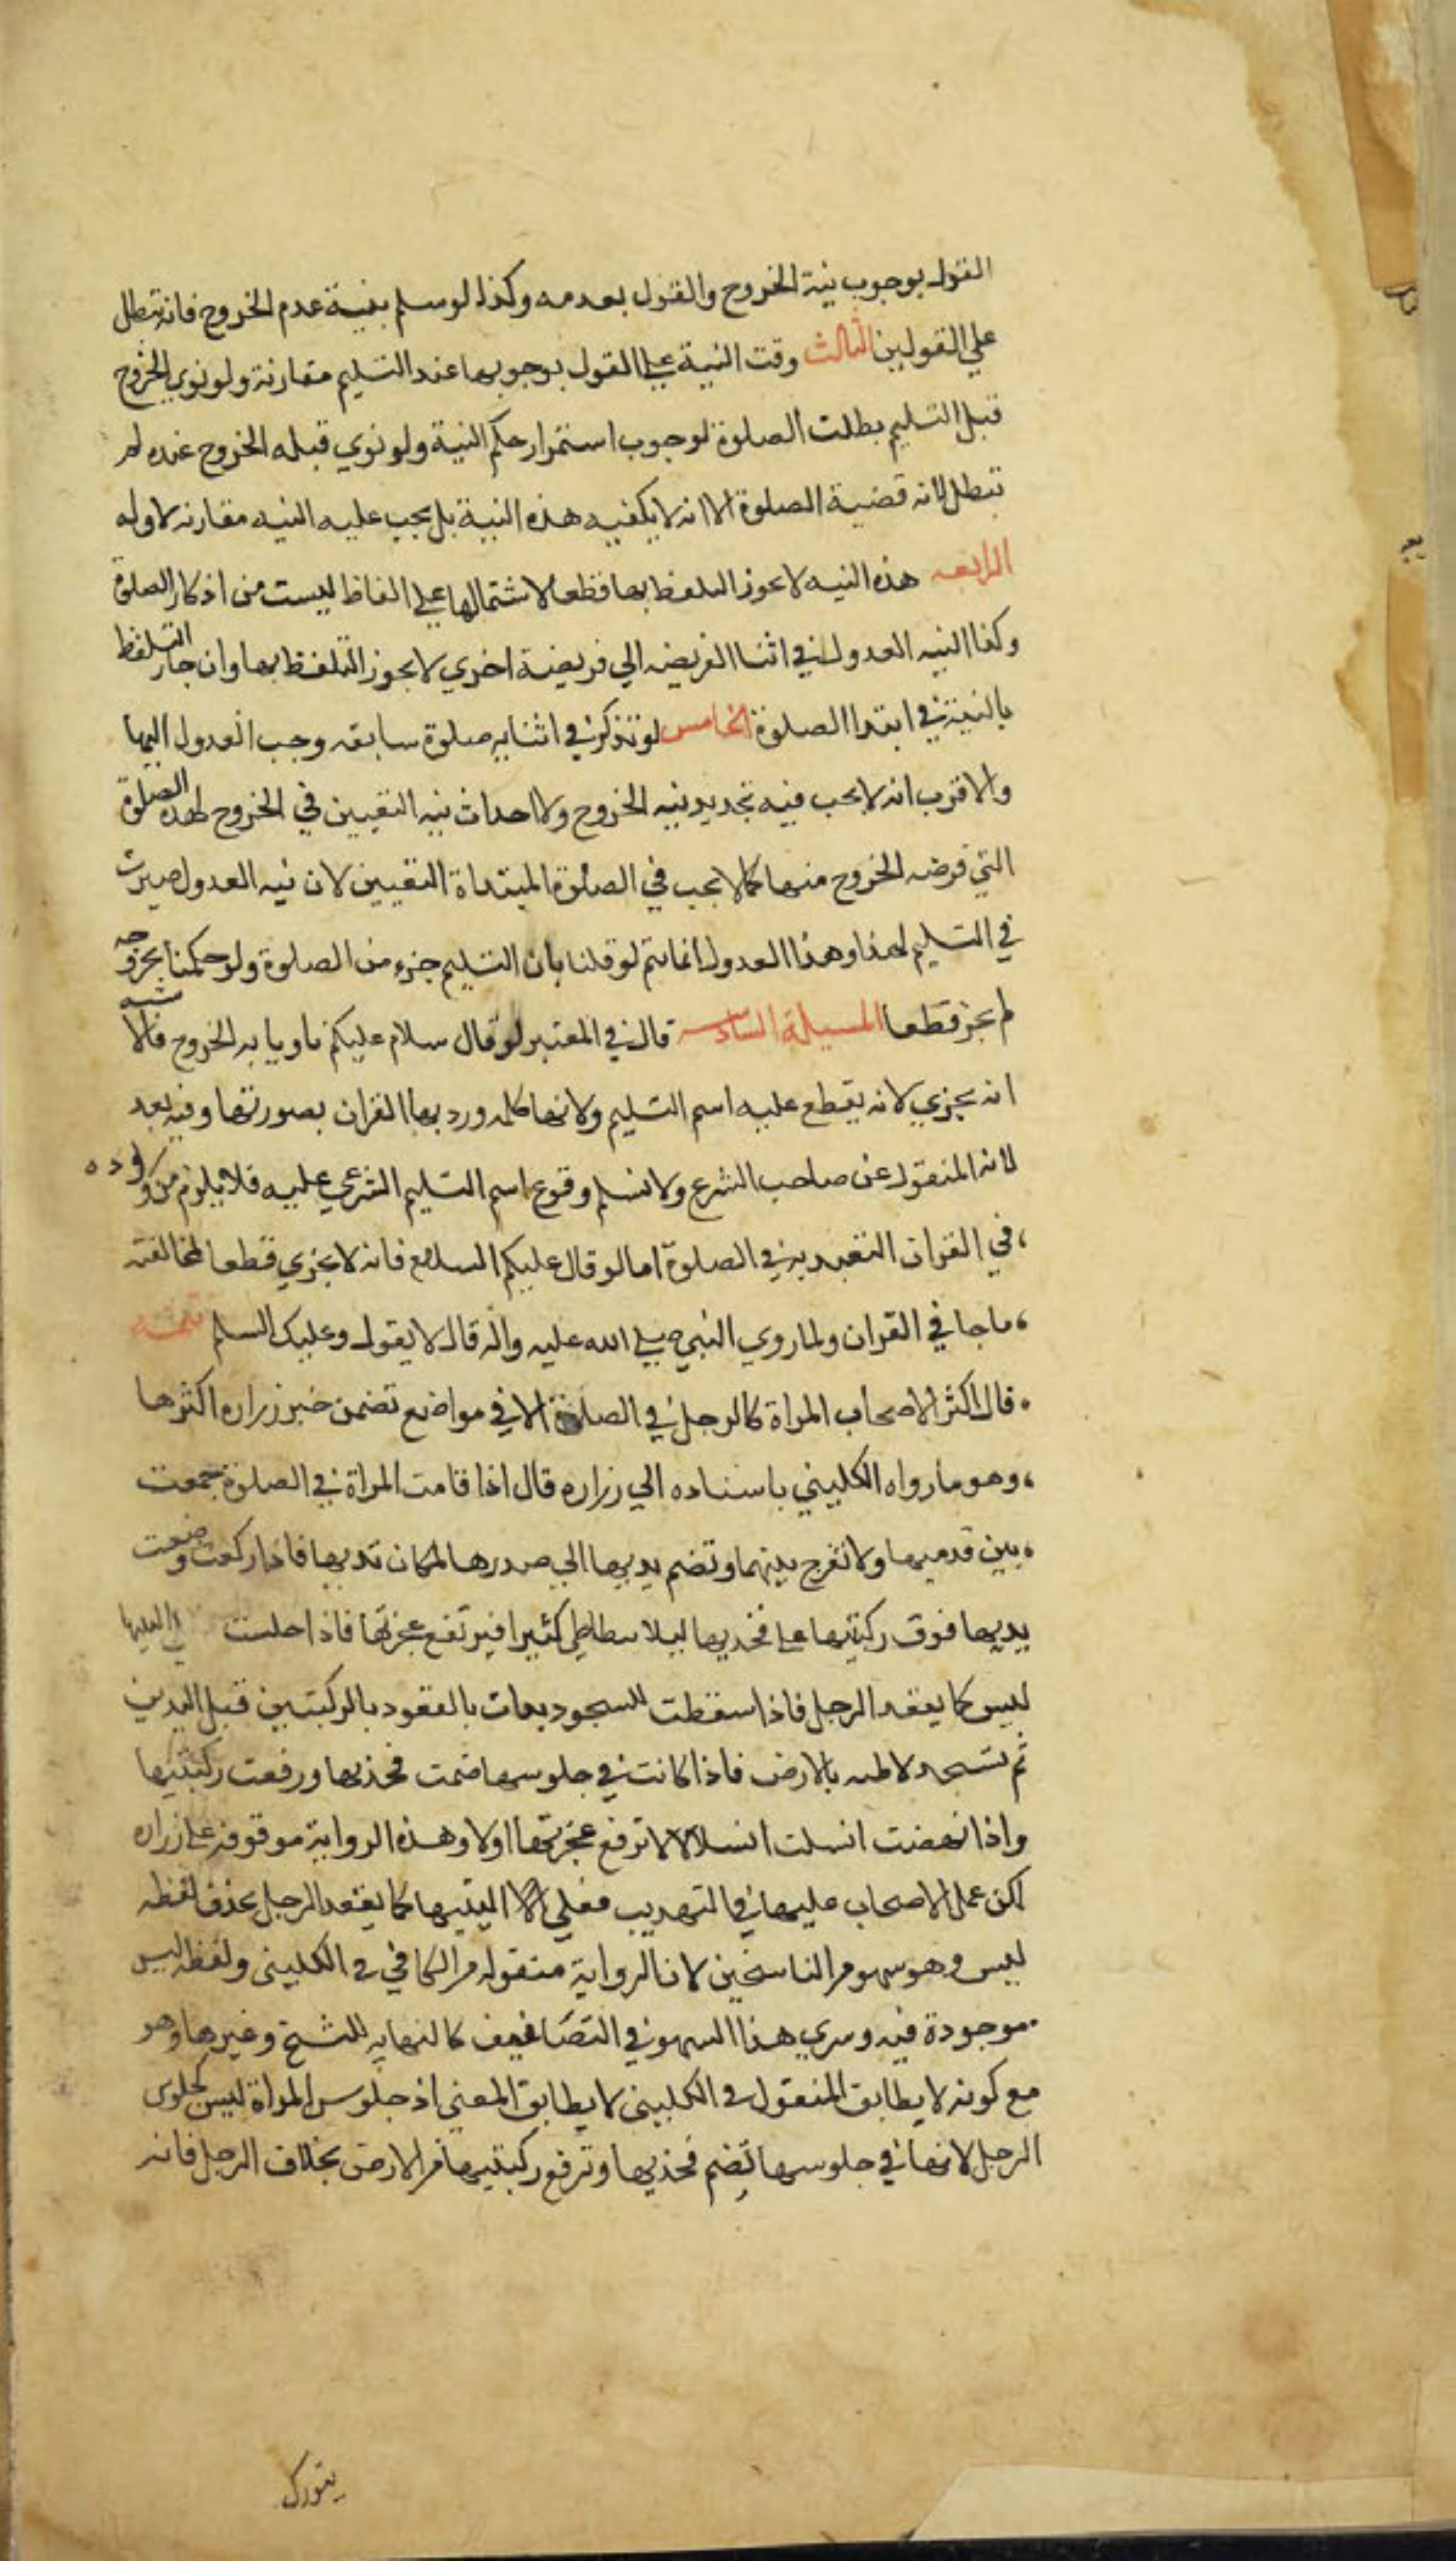 القول بوجوب نية الخروج والقول بعدمه وكذا لو سلم بنية عدم الخروج فانه تبطل
علي القولين الثالث وقت النية علي القول بوجوبها عند التسليم مقارنة ولو نوي الخروج
قبل التسليم بطلت الصلوة لوجوب استمرار حكم النية ولو نوي قبله الخروج عنده لم
تبطل لانه قضية الصلوة الا انه لا يكفيه هذه النية بل يجب عليه النيه مقارنه لاوله
الرابعه هذه النيه لا يجوز التلفظ بها قطعا لاشتمالها علي الفاظ ليست من اذكار الصلوة
وكذا النيه العدول في اثنا الفريضه الي فريضة اخري لا يجوز التلفظ بها وان جاز التلفظ
بالنية في ابتدا الصلوة الخامس لو تذكر في اثنايه صلوة سابقه وجب العدول اليها
والاقرب انه لا يجب فيه تجديد نيه الخروج ولا احداث نيه التعيين في الخروج لهذه الصلوة
التي فرضه الخروج منها كما لا يجب في الصلوة المبتداة التعيين لان نيه العدول صيرت
في التسليم لهذا وهذا العدول انما يتم لو قلنا بان التسليم جزء من الصلوة ولو حكمنا بخروجه
لم يجز قطعا المسيلة السادسه قال في المعتبر لو قال سلام عليكم ناويا به الخروج فالاشبه
انه يجزي لانه يقطع عليه اسم التسليم ولانها كلمه ورد بها القران بصورتها وفيه بعد
لانه المنقول عن صاحب الشرع ولا نسلم وقوع اسم التسليم الشرعي عليه فلا يلزم من وروده
في القران التعبد به في الصلوة اما لو قال عليكم السلام فانه لا يجزي قطعا لمخالفته
ما جا في القران ولما روي النبي صلي الله عليه واله قال لا يقول وعليك السلم تتمه
قال اكثر الاصحاب المراة كالرجل في الصلوة الا في مواضع تضمن خبر زراره اكثرها
وهو ما رواه الكليني باسناده الي زراره قال اذا قامت المراة في الصلوة جمعت
بين قدميها ولا تفرج بينهما وتضم يديها الي صدرها لمكان ثدييها فاذا ركعت وضعت
يديها فوق ركبتيها علي فخذيها ليلا تطاطي كثيرا فيرتفع عجزتها فاذا جلست فعلي اليتيها
ليس كما يقعد الرجل فاذا سقطت للسجود بدات بالقعود بالركبتين قبل اليدين
ثم تسجد لاطيه بالارض فاذا كانت في جلوسها ضمت فخذيها ورفعت ركبتيها
واذا نهضت انسلت انسلالا لا ترفع عجزتها اولا وهذه الرواية موقوفه علي زراره
لكن عمل الاصحاب عليها في التهديب فعلي اليتيها كما يقعد الرجل بحذف لفظه
ليس وهو سهو من الناسخين لان الرواية منقوله من الكافي في الكليني ولفظه ليس
موجودة فيه وسري هذا السهو في التصانيف كالنهايه للشيخ وغيرها وهو
مع كونه لا يطابق المنقول في الكليني لا يطابق المعني اذ جلوس المراة ليس كجلوس
الرجل لانها في جلوسها تضم فخذيها وترفع ركبتيها من الارض بخلاف الرجل فانه
يتورك